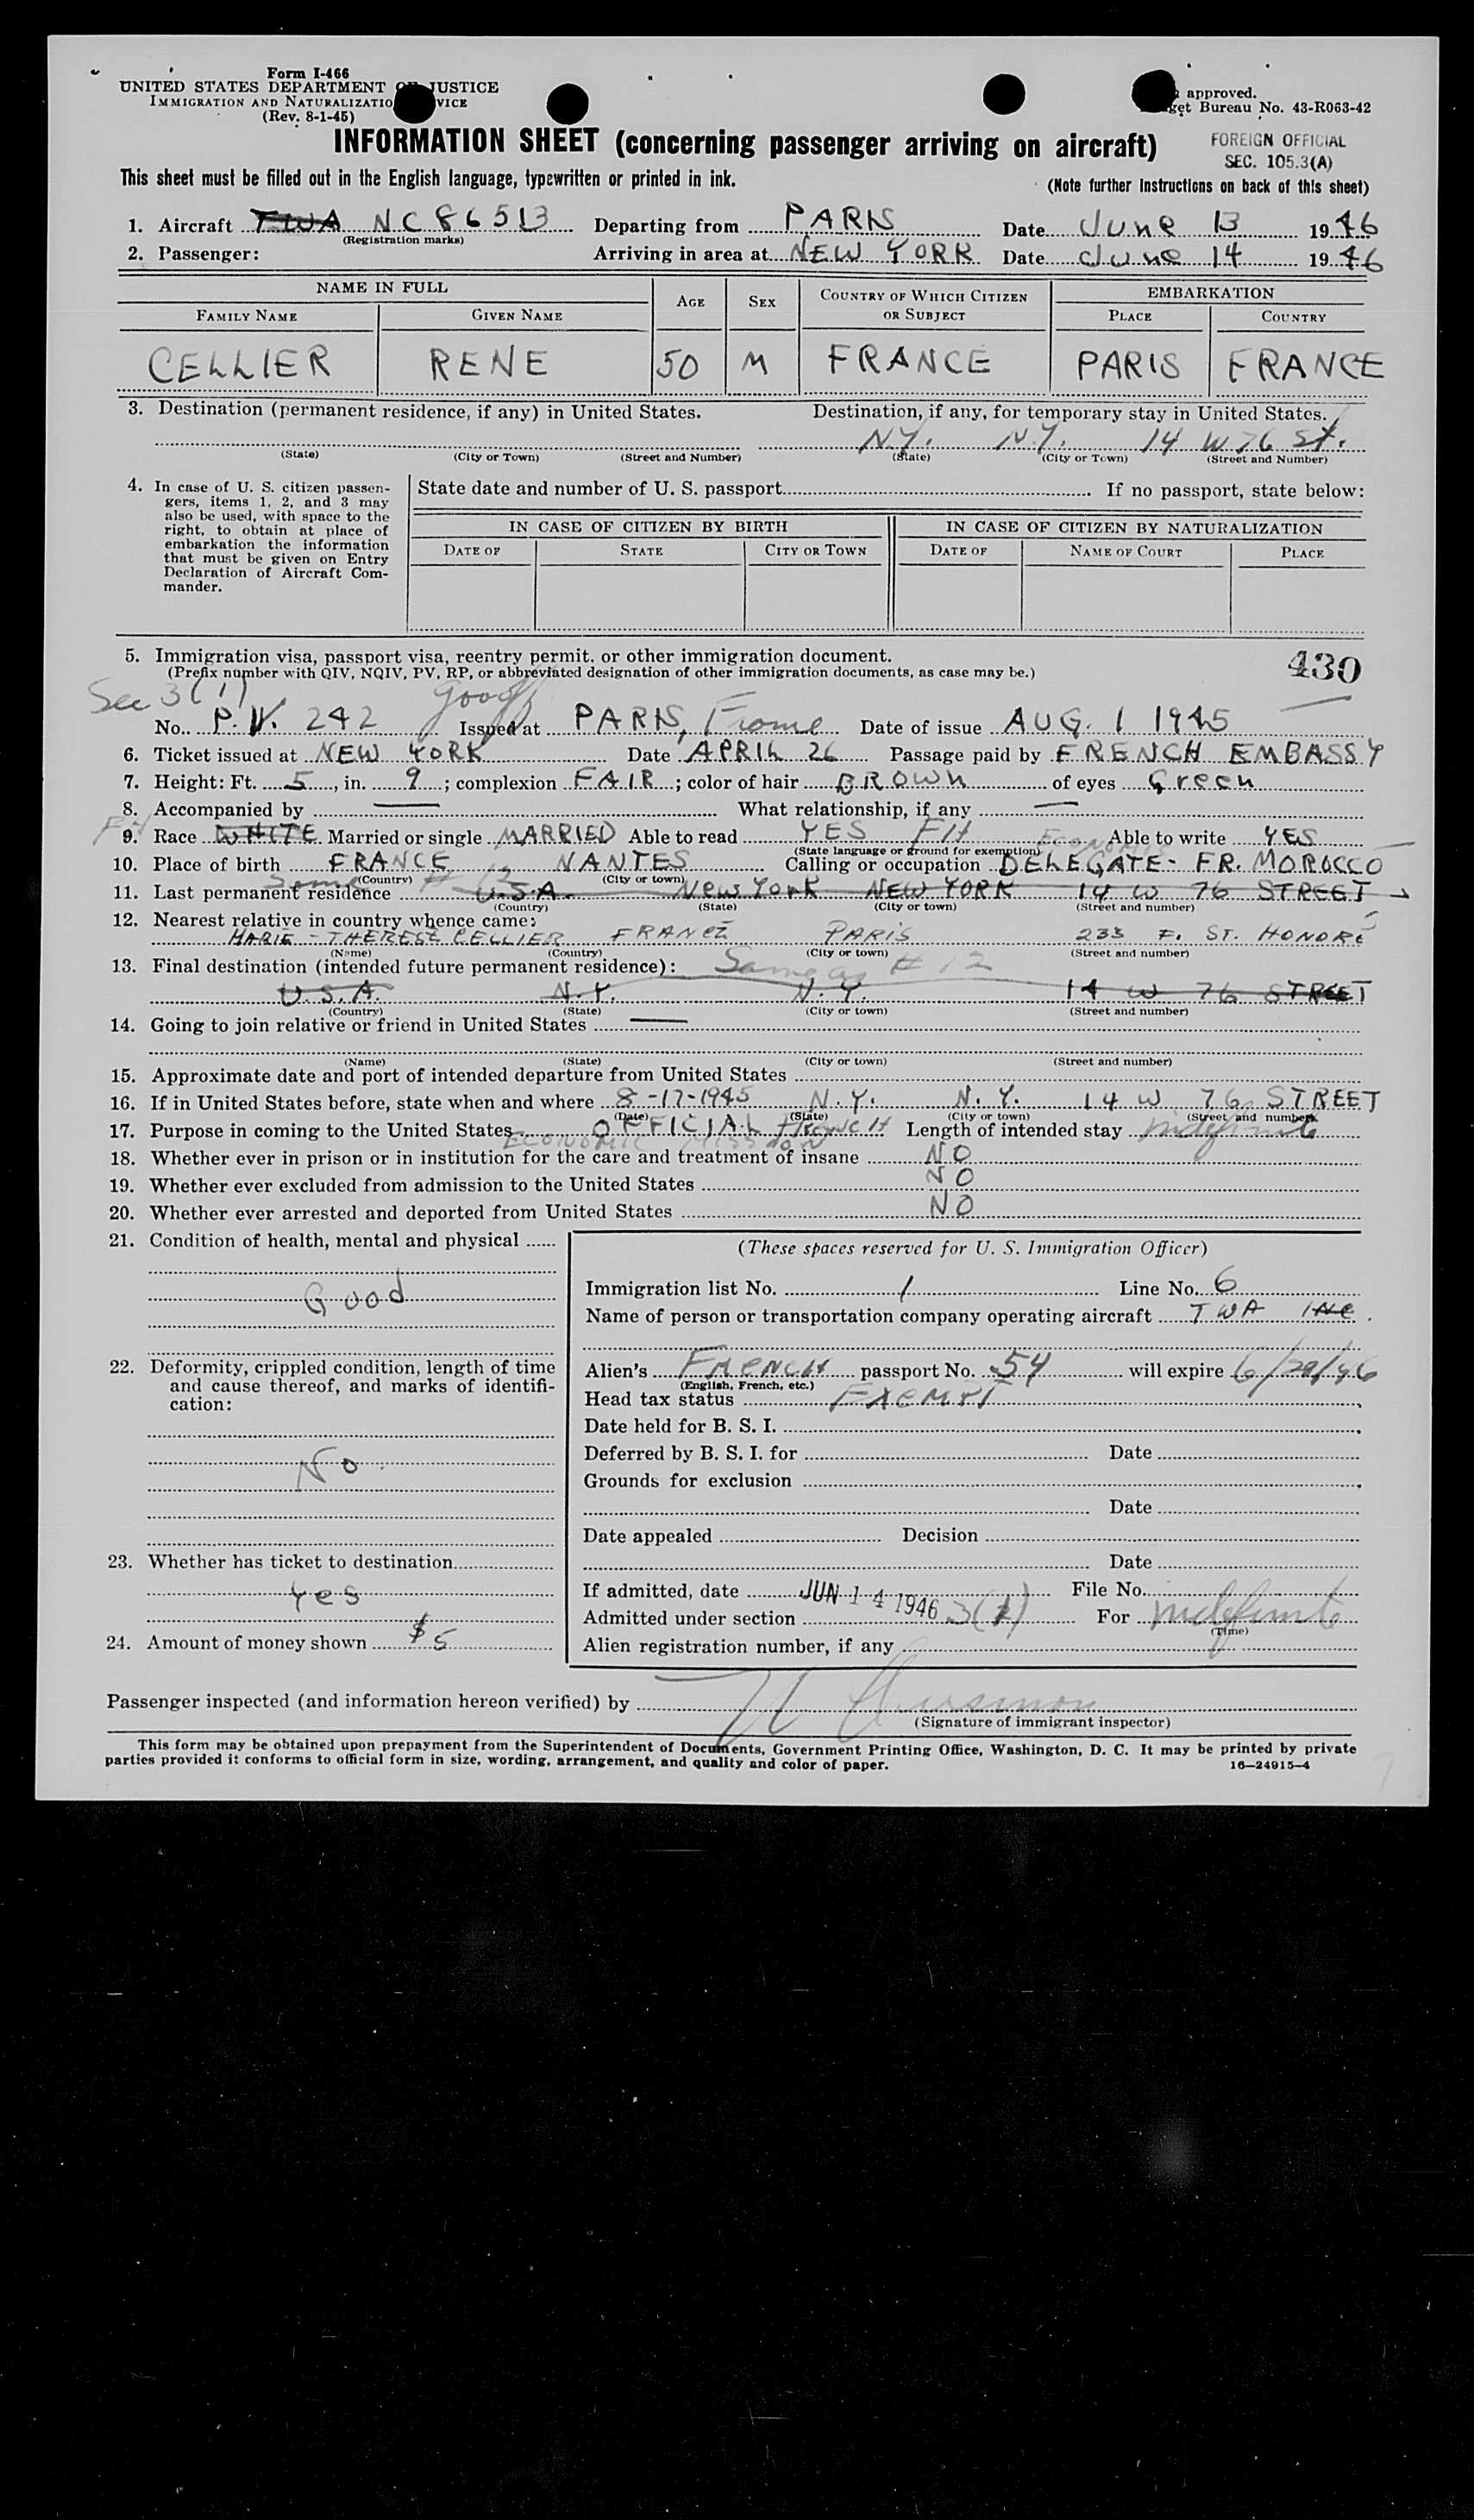 Form I-466
UNITED STATES DEPARTMENT OF JUSTICE
IMMIGRATION AND NATURALIZATIO VICE
(Rev. 8-1-45)
approved.
get Bureau No. 43-R063-42
INFORMATION SHEET (concerning passenger arriving on aircraft)
FOREIGN OFFICIAL
SEC. 105.3(A)
This sheet must be filled out in the English language, typewritten or printed in ink.
(Note further instructions on back of this sheet)
1. Aircraft TWA NC 86513 Departing from PARIS Date June 13 1946
(Registration marks)
2. Passenger: Arriving in area at NEW YORK Date June 14 1946
NAME IN FULL AGE SEX COUNTRY OF WHICH CITIZEN OR SUBJECT EMBARKATION
FAMILY NAME GIVEN NAME PLACE COUNTRY
CELLIER RENE 50 M FRANCE PARIS FRANCE
3. Destination (permanent residence, if any) in United States. Destination, if any, for temporary stay in United States.
N.Y. N.Y. 14 W 76 St.
(State) (City or Town) (Street and Number) (State) (City or Town) (Street and Number)
4. In case of U. S. citizen passengers, items 1, 2, and 3 may also be used, with space to the right, to obtain at place of embarkation the information that must be given on Entry Declaration of Aircraft Commander.
State date and number of U. S. passport If no passport, state below:
IN CASE OF CITIZEN BY BIRTH IN CASE OF CITIZEN BY NATURALIZATION
DATE OF STATE CITY OR TOWN DATE OF NAME OF COURT PLACE
5. Immigration visa, passport visa, reentry permit, or other immigration document.
(Prefix number with QIV, NQIV, PV, RP, or abbreviated designation of other immigration documents, as case may be.)
430
Sec 3(1)
No. P.V. 242 Issued at PARIS, France Date of issue AUG. 1 1945
6. Ticket issued at NEW YORK Date APRIL 26 Passage paid by FRENCH EMBASSY
7. Height: Ft. 5, in. 9; complexion FAIR; color of hair BROWN of eyes Green
8. Accompanied by — What relationship, if any —
9. Race WHITE Married or single MARRIED Able to read YES Able to write YES
(State language or ground for exemption)
10. Place of birth FRANCE NANTES Calling or occupation DELEGATE - FR. MOROCCO
(Country) (City or town)
11. Last permanent residence U.S.A. New York NEW YORK 14 W 76 STREET
(Country) (State) (City or town) (Street and number)
12. Nearest relative in country whence came:
MARIE-THERESE CELLIER FRANCE PARIS 233 F. ST. HONORÉ
(Name) (Country) (City or town) (Street and number)
13. Final destination (intended future permanent residence): Same as # 12
U.S.A. N.Y. N.Y. 14 W 76 STREET
(Country) (State) (City or town) (Street and number)
14. Going to join relative or friend in United States —
(Name) (State) (City or town) (Street and number)
15. Approximate date and port of intended departure from United States
16. If in United States before, state when and where 8-17-1945 N.Y. N.Y. 14 W 76 STREET
(Date) (State) (City or town) (Street and number)
17. Purpose in coming to the United States OFFICIAL French Length of intended stay indefinite
ECONOMIC MISSION
18. Whether ever in prison or in institution for the care and treatment of insane NO
19. Whether ever excluded from admission to the United States NO
20. Whether ever arrested and deported from United States NO
21. Condition of health, mental and physical
Good
22. Deformity, crippled condition, length of time and cause thereof, and marks of identification:
No
23. Whether has ticket to destination
Yes
24. Amount of money shown $5
(These spaces reserved for U. S. Immigration Officer)
Immigration list No. 1 Line No. 6
Name of person or transportation company operating aircraft TWA INC.
Alien's FRENCH passport No. 54 will expire 6/29/46
(English, French, etc.)
Head tax status EXEMPT
Date held for B. S. I.
Deferred by B. S. I. for Date
Grounds for exclusion
Date
Date appealed Decision
Date
If admitted, date JUN 14 1946 File No.
Admitted under section 3(1) For indefinite
(Time)
Alien registration number, if any
Passenger inspected (and information hereon verified) by
(Signature of immigrant inspector)
This form may be obtained upon prepayment from the Superintendent of Documents, Government Printing Office, Washington, D. C. It may be printed by private
parties provided it conforms to official form in size, wording, arrangement, and quality and color of paper.
16—24915-4